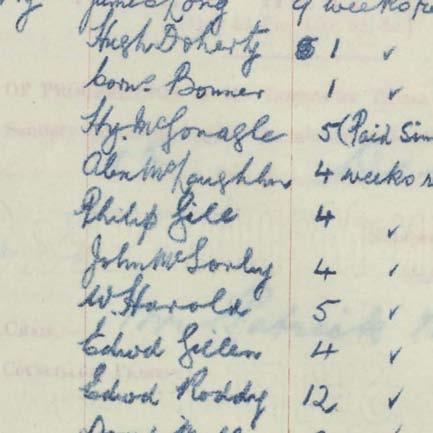 James Long 9 weeks
Hugh Doherty 1 ✓
Corns. Bonner 1 ✓
Hy. McGonagle 5 (Paid
Alex McLaughlin 4 weeks
Philip Gill 4 ✓
John McSorley 4 ✓
W Harold 5 ✓
Edwd Gillen 4 ✓
Edwd Roddy 12 ✓